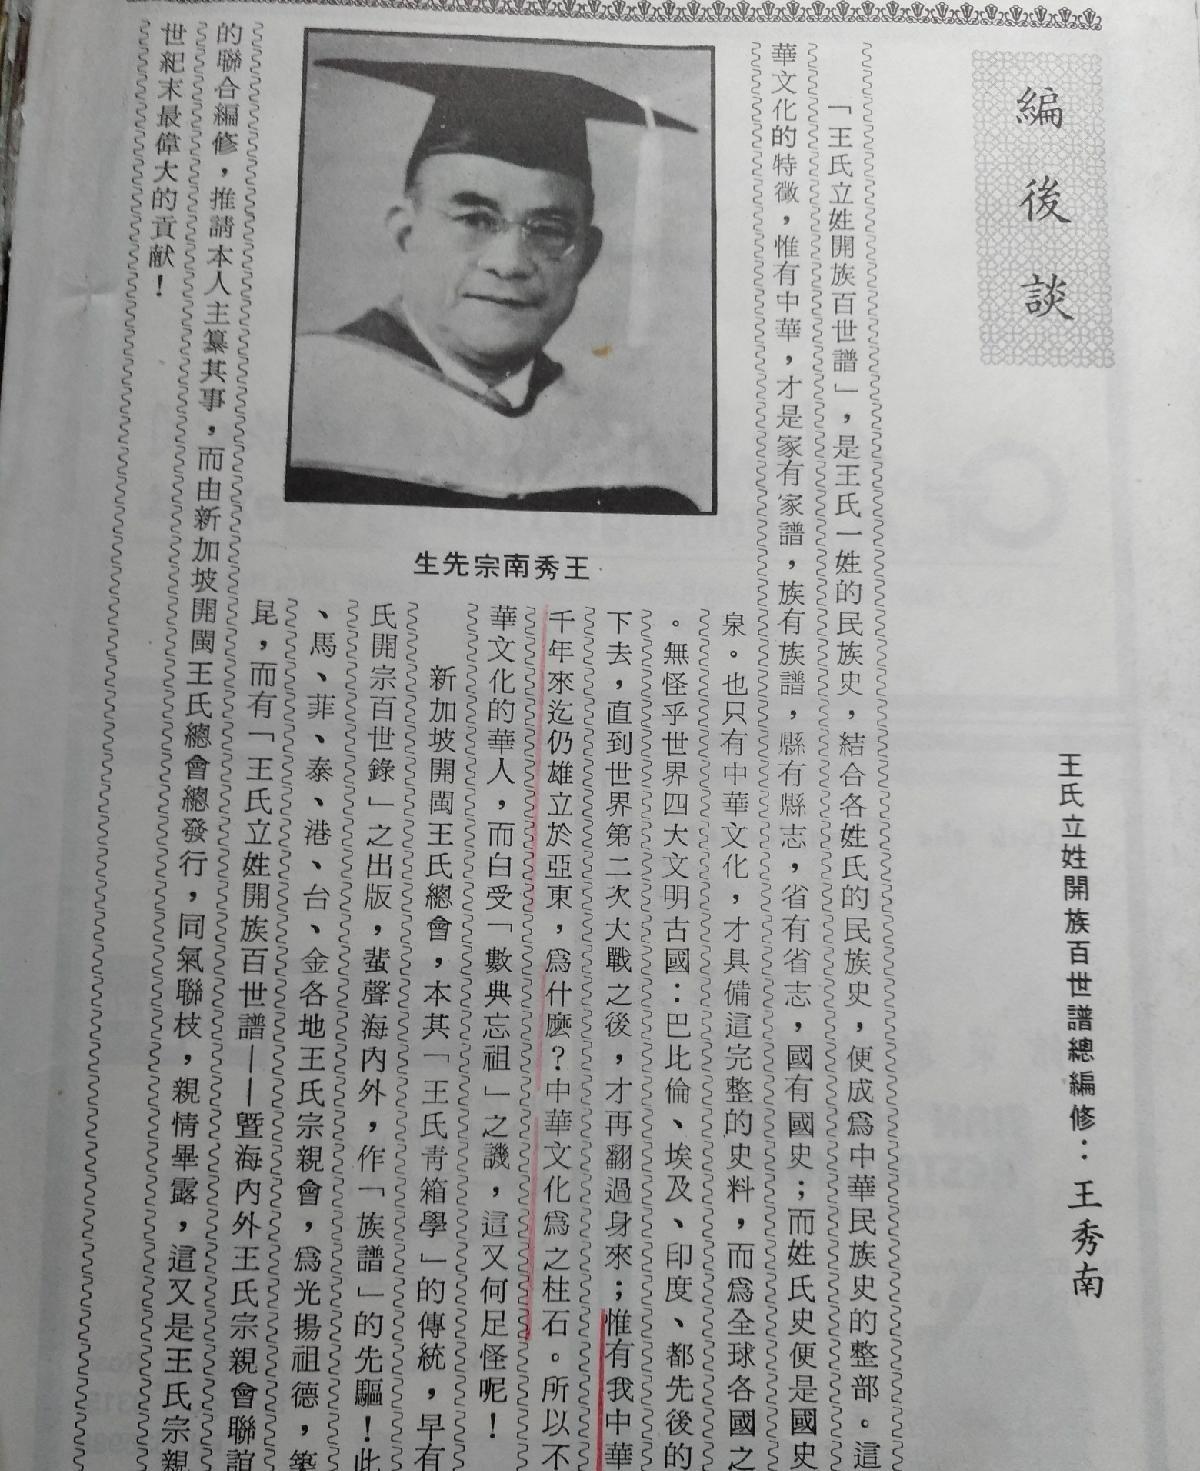 編後談
王氏立姓開族百世譜總編修：王秀南
「王氏立姓開族百世譜」，是王氏一姓的民族史，結合各姓氏的民族史，便成爲中華民族史的整部。這
華文化的特徵，惟有中華，才是家有家譜，族有族譜，縣有縣志，省有省志，國有國史；而姓氏史便是國史
泉。也只有中華文化，才具備這完整的史料，而爲全球各國之
。無怪乎世界四大文明古國：巴比倫、埃及、印度、都先後的
下去，直到世界第二次大戰之後，才再翻過身來；惟有我中華
千年來迄仍雄立於亞東，爲什麽？中華文化爲之柱石。所以不
華文化的華人，而白受「數典忘祖」之譏，這又何足怪呢！
新加坡開閩王氏總會，本其「王氏青箱學」的傳統，早有
氏開宗百世錄」之出版，蜚聲海內外，作「族譜」的先驅！此
、馬、菲、泰、港、台、金各地王氏宗親會，爲光揚祖德，築
昆，而有「王氏立姓開族百世譜——暨海內外王氏宗親會聯誼
王秀南宗先生
的聯合編修，推請本人主纂其事，而由新加坡開閩王氏總會總發行，同氣聯枝，親情畢露，這又是王氏宗親
世紀末最偉大的貢献！